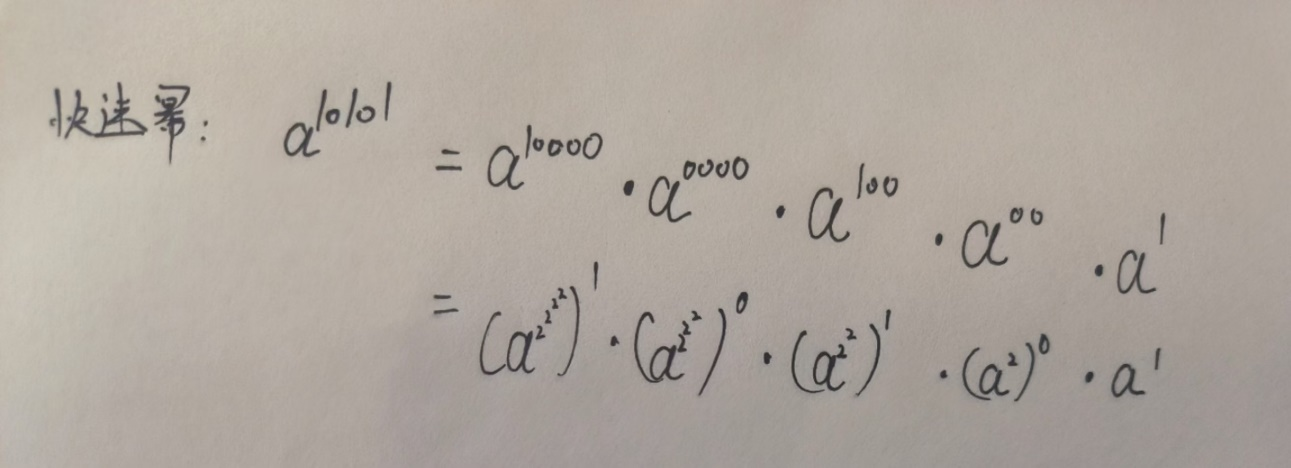 快速幂: a^{10101} = a^{10000} · a^{0000} · a^{100} · a^{00} · a^{1}
= (a^{2^{2^{2^{2}}}})^{1} · (a^{2^{2^{2}}})^{0} · (a^{2^{2}})^{1} · (a^{2})^{0} · a^{1}